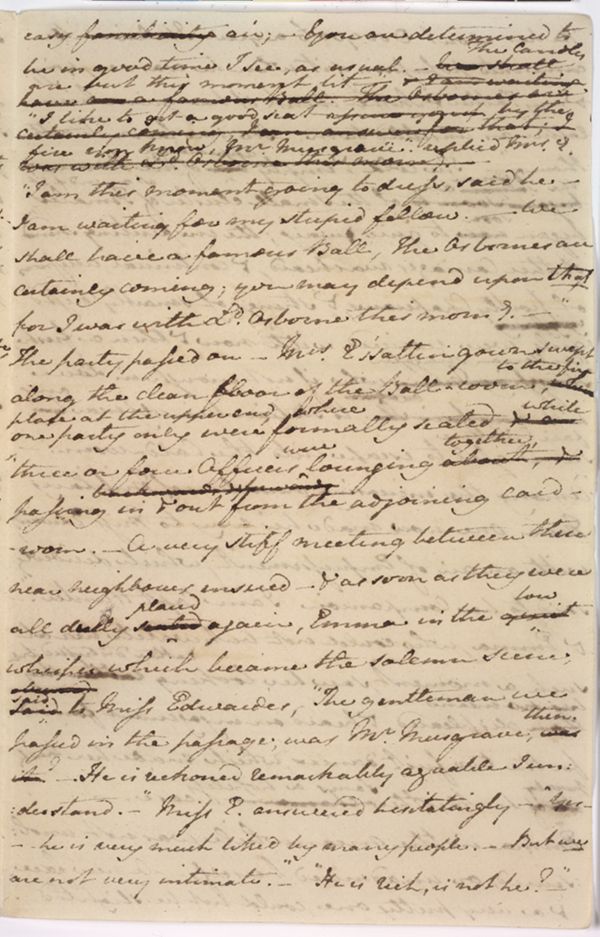 easy familiarity air; — "you are determined to
be in good time I see, as usual. — he shall The Candles
are but this moment lit" — & I am waiting
have a famous Ball. The Osbornes are
"I like to get a good seat by the
certainly coming I can answer for that, I
fire you know, Mr. Musgrave." replied Mrs. E.
was with Ld. Osborne this morng. —
"I am this moment going to dress, said he —
I am waiting for my stupid fellow. — We
shall have a famous Ball, The Osbornes are
certainly coming; you may depend upon that
for I was with Ld. Osborne this morng. —"
The party passed on — Mrs. E's sattin gown swept
along the clean floor of the Ball-room, to the fire
place at the upper end, where
one party only were formally seated, & while
three or four Officers were lounging about, & together,
backwards & forwards
passing in & out from the adjoining card-
-room. — A very stiff meeting between these
near neighbours ensued — & as soon as they were
all dully seated placed again, Emma in the quiet low
whisper which became the solemn scene,
observed
said to Miss Edwardes, "The gentleman we
passed in the passage, was Mr. Musgrave, then. was
it? — He is reckoned remarkably agreable I un:
:derstand. —" Miss E. answered hesitatingly — "Yes —
— he is very much liked by many people. — But we
are not very intimate." — "He is rich, is not he?" —